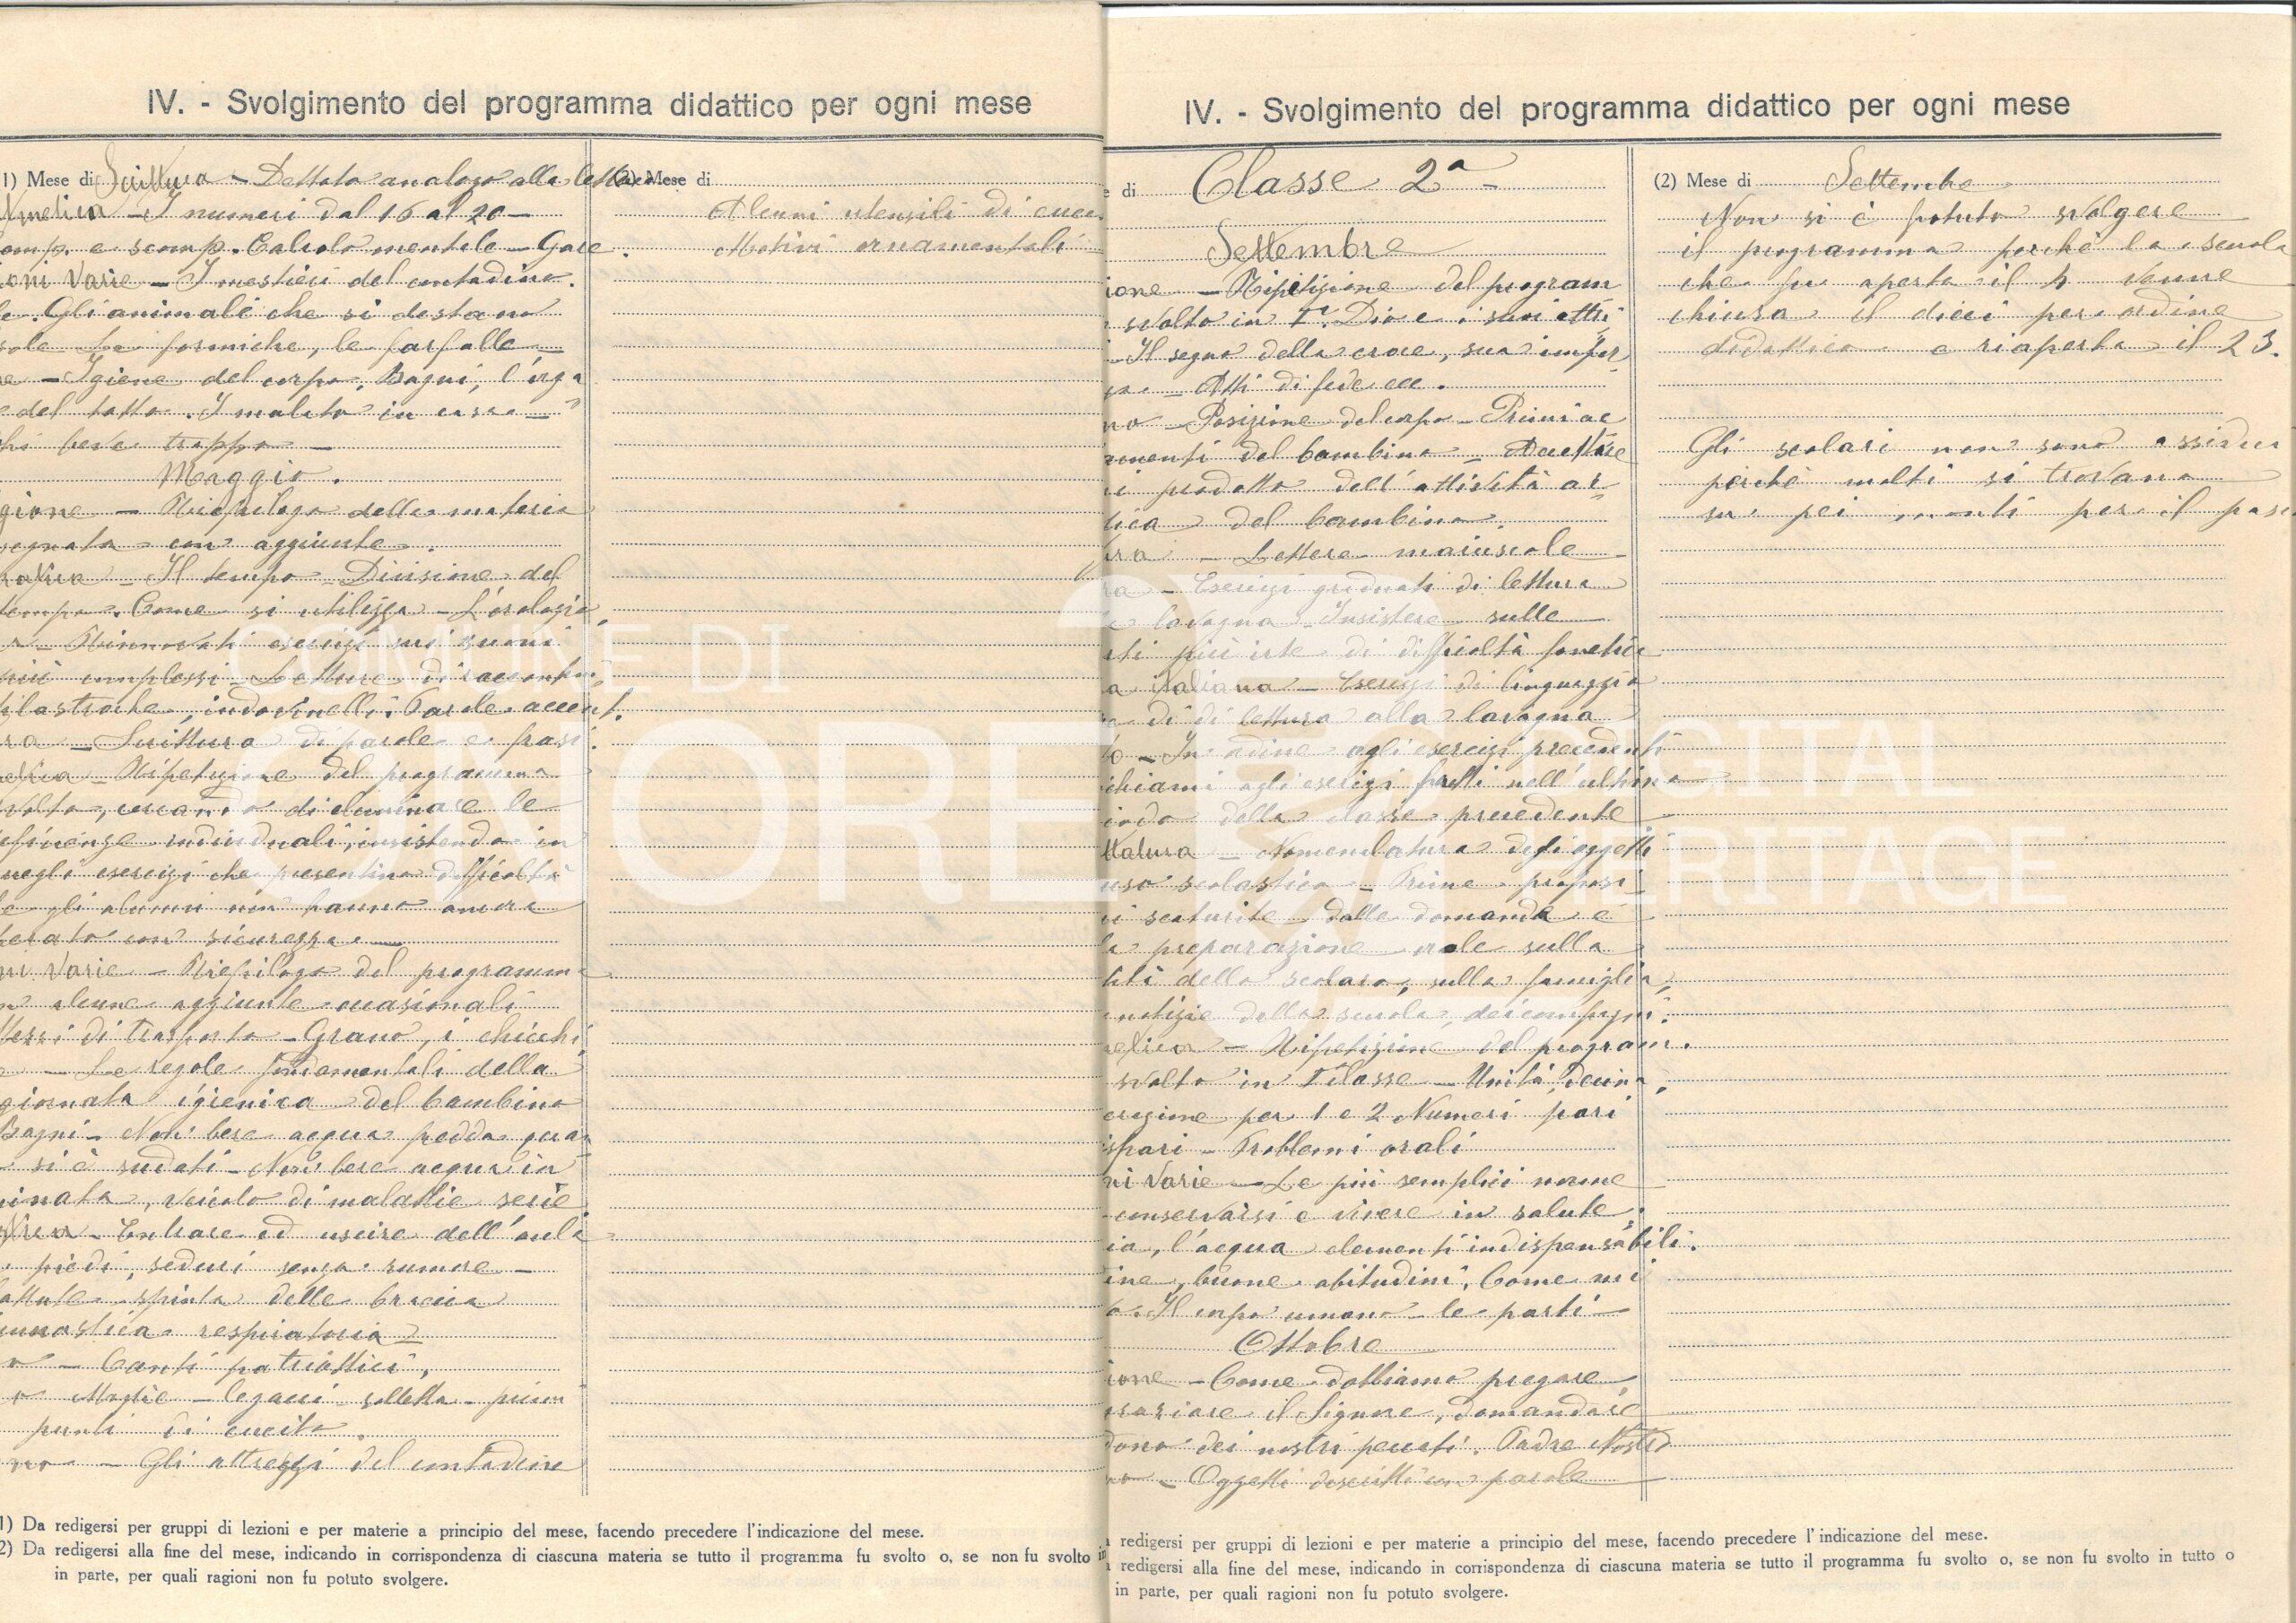 IV. - Svolgimento del programma didattico per ogni mese
1) Mese di Scrittura - Dettato analogo alla lettura
- I numeri dal 16 al 20 -
omp. e scomp. Calcolo mentale - Gare
oni Varie - I mestieri del contadino.
e. Gli animali che si destano
sole Le formiche, le farfalle
e - Igiene del corpo, Bagni, l'orga
e del tatto. I malato in casa -
hi beve troppo -
Maggio.
gione - Riepilogo della materia
segnata con aggiunte.
- Il tempo - Divisione del
tempo. Come si utilizza - L'orologio
- Rinnovati esercizi sui suoni
più complessi - Letture di raccontini,
filastrocche, indovinelli. Parole accent.
ra - Scrittura di parole e frasi.
etica - Ripetizione del programma
volto, cercando di eliminare le
eficienze individuali, insistendo in
uegli esercizi che presentino difficoltà
e gli alunni non hanno ancora
erato con sicurezza -
ni Varie - Riepilogo del programma
n alcune aggiunte occasionali
Mezzi di trasporto - Grano, i chicchi
e - Le regole fondamentali della
giornata igienica del bambino
Bagni - Non bere acqua fredda quan
si è sudati - Non bere acqua in
uinata, veicolo di malattie serie
- Entrare ed uscire dell'aula
piedi, seduci senza rumore -
battute spinta delle braccia
innastica respiratoria
o - Canti patriottici,
o Maglie - legacci soletta - primi
punti di cucito.
no - Gli attrezzi del contadino
(2) Mese di
Alcuni utensili di cucu
Motivi ornamentali
1) Da redigersi per gruppi di lezioni e per materie a principio del mese, facendo precedere l'indicazione del mese.
2) Da redigersi alla fine del mese, indicando in corrispondenza di ciascuna materia se tutto il programma fu svolto o, se non fu svolto in
in parte, per quali ragioni non fu potuto svolgere.
IV. - Svolgimento del programma didattico per ogni mese
e di Classe 2ª -
Settembre
ione - Ripetizione del program
svolto in Iª. Dio e i suoi attri
- Il segno della croce, sua impor
- Atti di fede ecc.
no - Posizione del corpo - Primi ac
amenti del bambino - Accettare
i prodotto dell'attività ar
tica del bambino.
ura - Lettere maiuscole
ra - Esercizi graduati di lettura
a lavagna - Insistere sulle
ti più irte di difficoltà fonetica
a italiana - Esercizi di linguaggio
di di lettura alla lavagna
o - In ordine agli esercizi precedenti
ichiami agli esercizi fatti nell'ultimo
iodo della classe precedente
ttatura - Nomenclatura degli oggetti
uso scolastico - Prime proposi
i scaturite dalle domande e
la preparazione orale sulla
ità dello scolaro, sulla famiglia,
notizie della scuola, dei compagni.
etica - Ripetizione del program.
svolto in I classe - Unità, decina,
erazione per 1 e 2 Numeri pari
ispari - Problemi orali
ni Varie - Le più semplici norme
conservarsi e vivere in salute.
ia, l'acqua elementi indispensabili.
ine, buone abitudini, Come mi
o. Il corpo umano - le parti
Ottobre
ione - Come dobbiamo pregare,
graziare il Signore, domandare
dono dei nostri peccati. Padre Nostro
no - Oggetti descritti con parole
(2) Mese di Settembre
Non si è potuto svolgere
il programma perchè la scuola
che fu aperta il 4 venne
chiusa il dieci per ordine
didattico e riaperta il 23.
Gli scolari non sono assidui
perchè molti si trovano
su pei monti per il pasc
redigersi per gruppi di lezioni e per materie a principio del mese, facendo precedere l'indicazione del mese.
redigersi alla fine del mese, indicando in corrispondenza di ciascuna materia se tutto il programma fu svolto o, se non fu svolto in tutto o
in parte, per quali ragioni non fu potuto svolgere.
COMUNE DI
ONORE
DIGITAL
HERITAGE